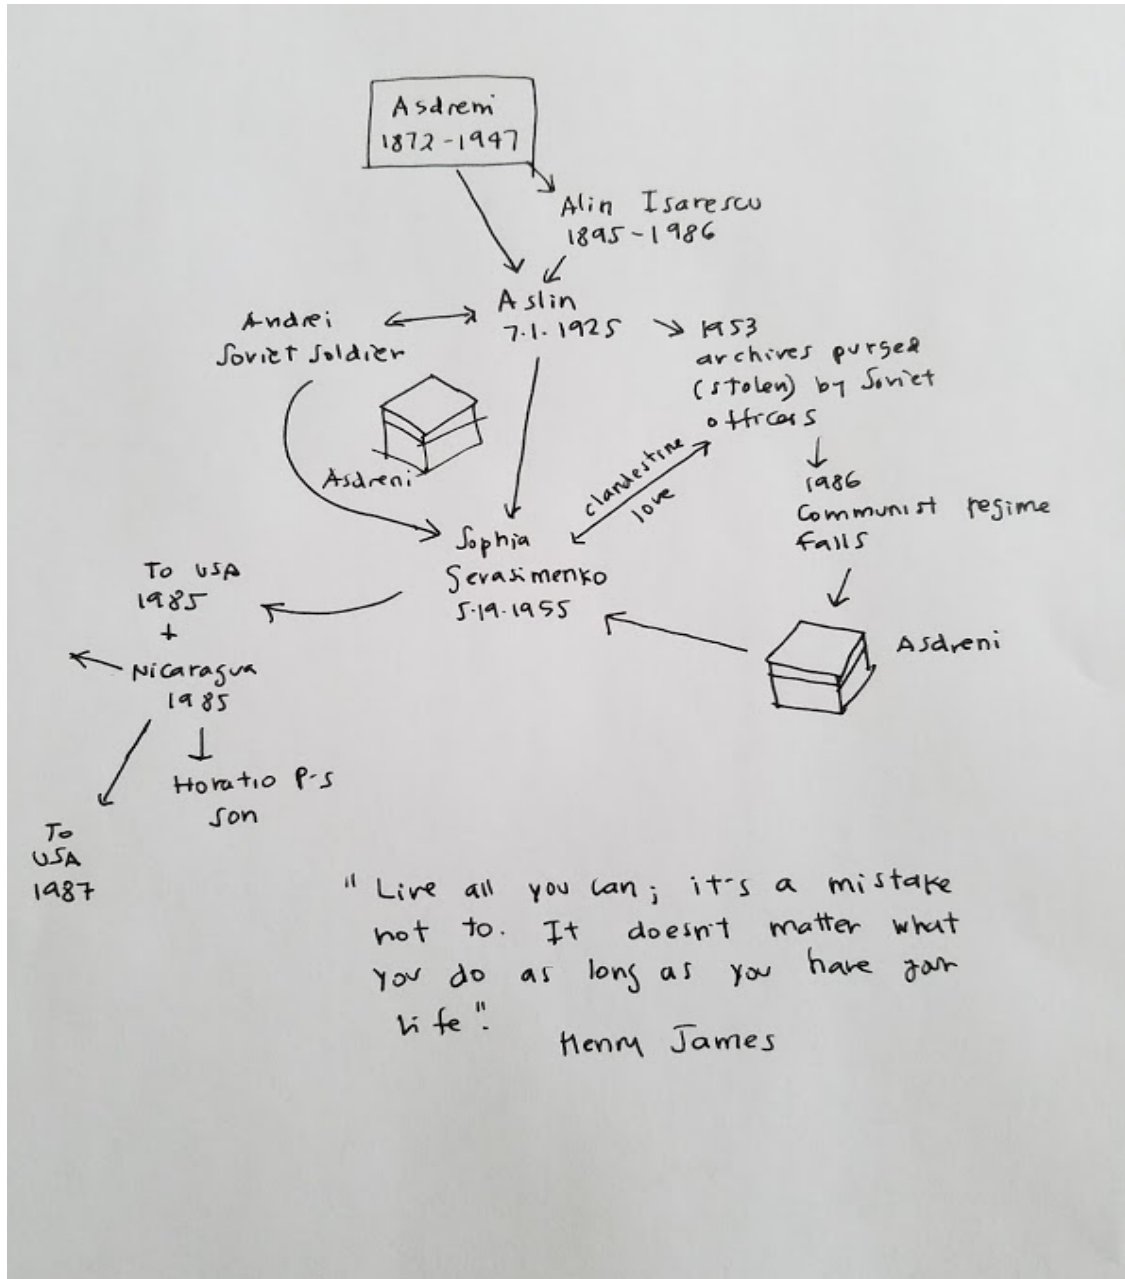 Asdreni
1872-1947
Alin Isarescu
1895-1986
Aslin
7.1.1925
Andrei
Soviet Soldier
1953
archives purged
(stolen) by Soviet
officers
Asdreni
clandestine
love
1986
Communist regime
falls
Sophia
Gerasimenko
5.19.1955
To USA
1985
+
Nicaragua
1985
Asdreni
Horatio P-s
son
To
USA
1987
"Live all you can; it's a mistake
not to. It doesn't matter what
you do as long as you have your
life".
Henry James